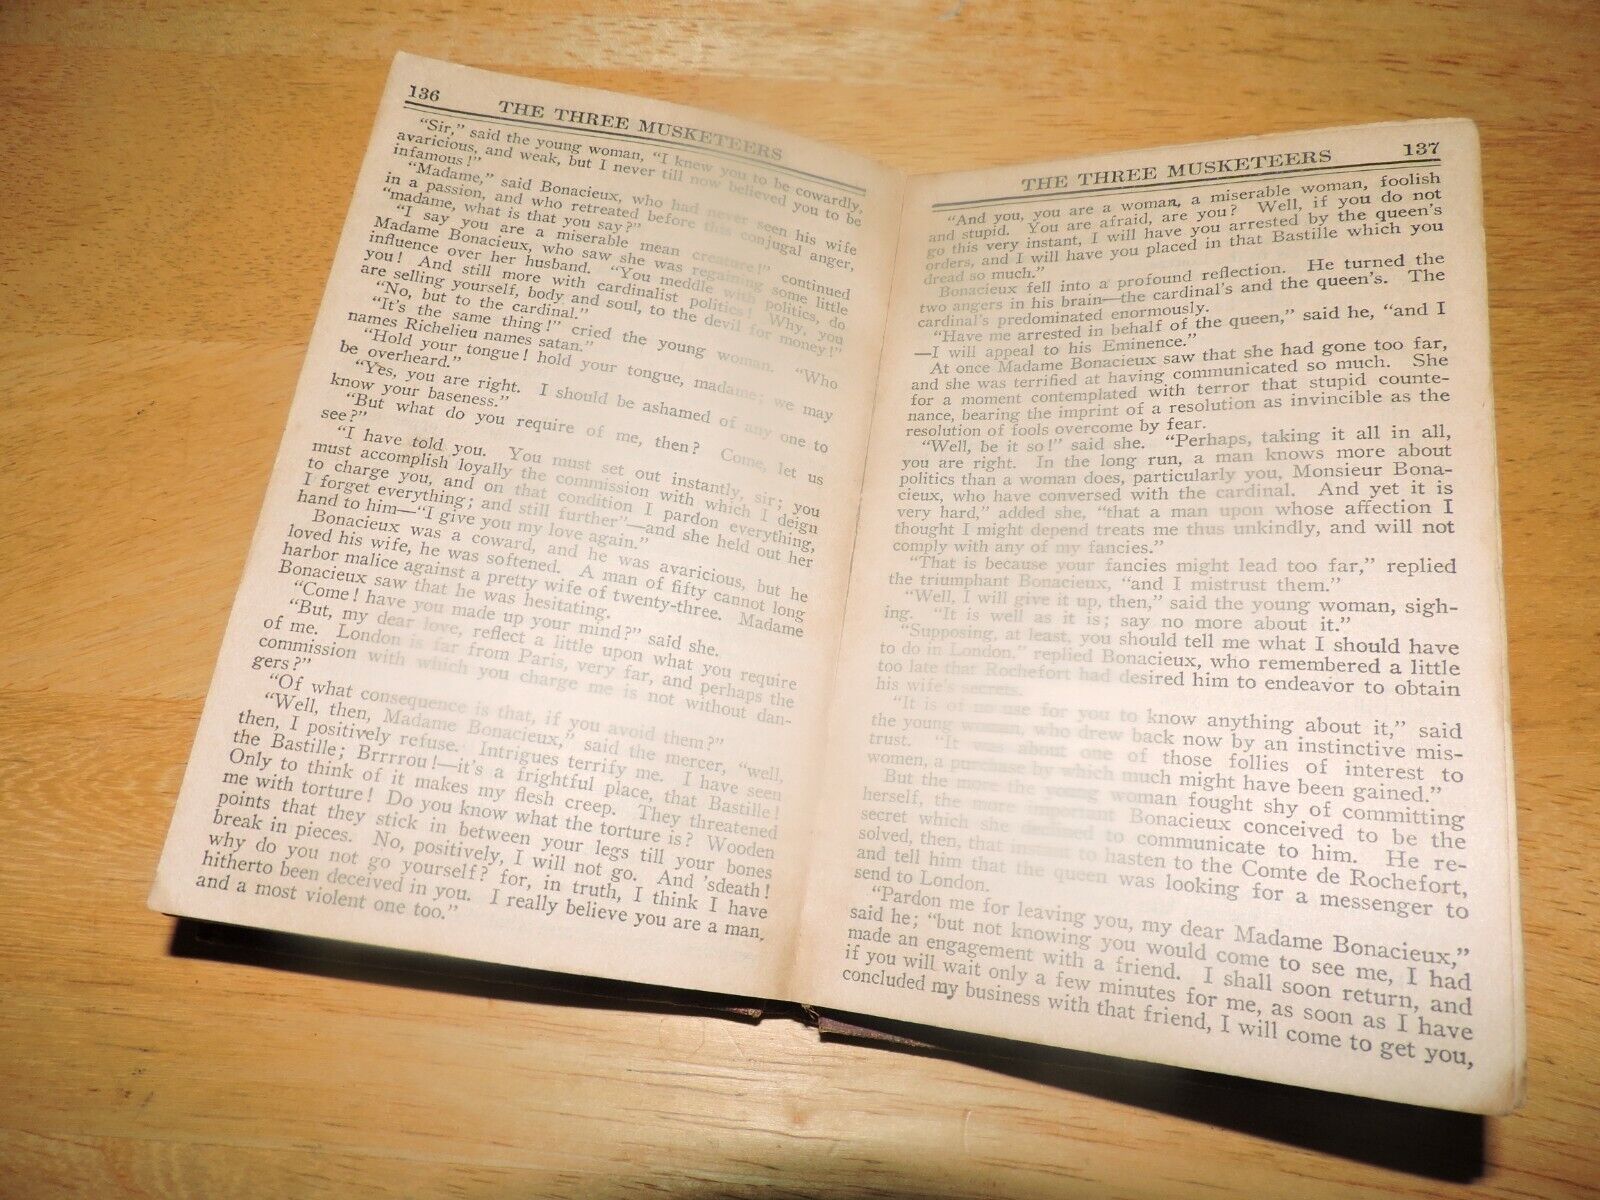 136 THE THREE MUSKETEERS
"Sir," said the young woman, "I knew you to be cowardly,
avaricious, and weak, but I never till now believed you to be
infamous!"
"Madame," said Bonacieux, who had never seen his wife
in a passion, and who retreated before this conjugal anger,
"madame, what is that you say?"
"I say you are a miserable mean creature!" continued
Madame Bonacieux, who saw she was regaining some little
influence over her husband. "You meddle with politics, do
you! And still more with cardinalist politics! Why, you
are selling yourself, body and soul, to the devil for money!"
"No, but to the cardinal."
"It's the same thing!" cried the young woman. "Who
names Richelieu names satan."
"Hold your tongue! hold your tongue, madame; we may
be overheard."
"Yes, you are right. I should be ashamed of any one to
know your baseness."
"But what do you require of me, then? Come, let us
see?"
"I have told you. You must set out instantly, sir; you
must accomplish loyally the commission with which I deign
to charge you, and on that condition I pardon everything,
I forget everything; and still further"—and she held out her
hand to him—"I give you my love again."
Bonacieux was a coward, and he was avaricious, but he
loved his wife, he was softened. A man of fifty cannot long
harbor malice against a pretty wife of twenty-three. Madame
Bonacieux saw that he was hesitating.
"Come! have you made up your mind?" said she.
"But, my dear love, reflect a little upon what you require
of me. London is far from Paris, very far, and perhaps the
commission with which you charge me is not without dan-
gers?"
"Of what consequence is that, if you avoid them?"
"Well, then, Madame Bonacieux," said the mercer, "well,
then, I positively refuse. Intrigues terrify me. I have seen
the Bastille; Brrrrou!—it's a frightful place, that Bastille!
Only to think of it makes my flesh creep. They threatened
me with torture! Do you know what the torture is? Wooden
points that they stick in between your legs till your bones
break in pieces. No, positively, I will not go. And 'sdeath!
why do you not go yourself? for, in truth, I think I have
hitherto been deceived in you. I really believe you are a man,
and a most violent one too."
THE THREE MUSKETEERS 137
"And you, you are a woman, a miserable woman, foolish
and stupid. You are afraid, are you? Well, if you do not
go this very instant, I will have you arrested by the queen's
orders, and I will have you placed in that Bastille which you
dread so much."
Bonacieux fell into a profound reflection. He turned the
two angers in his brain—the cardinal's and the queen's. The
cardinal's predominated enormously.
"Have me arrested in behalf of the queen," said he, "and I
—I will appeal to his Eminence."
At once Madame Bonacieux saw that she had gone too far,
and she was terrified at having communicated so much. She
for a moment contemplated with terror that stupid counte-
nance, bearing the imprint of a resolution as invincible as the
resolution of fools overcome by fear.
"Well, be it so!" said she. "Perhaps, taking it all in all,
you are right. In the long run, a man knows more about
politics than a woman does, particularly you, Monsieur Bona-
cieux, who have conversed with the cardinal. And yet it is
very hard," added she, "that a man upon whose affection I
thought I might depend treats me thus unkindly, and will not
comply with any of my fancies."
"That is because your fancies might lead too far," replied
the triumphant Bonacieux, "and I mistrust them."
"Well, I will give it up, then," said the young woman, sigh-
ing. "It is well as it is; say no more about it."
"Supposing, at least, you should tell me what I should have
to do in London." replied Bonacieux, who remembered a little
too late that Rochefort had desired him to endeavor to obtain
his wife's secrets.
"It is of no use for you to know anything about it," said
the young woman, who drew back now by an instinctive mis-
trust. "It was about one of those follies of interest to
women, a purchase by which much might have been gained."
But the more the young woman fought shy of committing
herself, the more important Bonacieux conceived to be the
secret which she declined to communicate to him. He re-
solved, then, that instant to hasten to the Comte de Rochefort,
and tell him that the queen was looking for a messenger to
send to London.
"Pardon me for leaving you, my dear Madame Bonacieux,"
said he; "but not knowing you would come to see me, I had
made an engagement with a friend. I shall soon return, and
if you will wait only a few minutes for me, as soon as I have
concluded my business with that friend, I will come to get you,